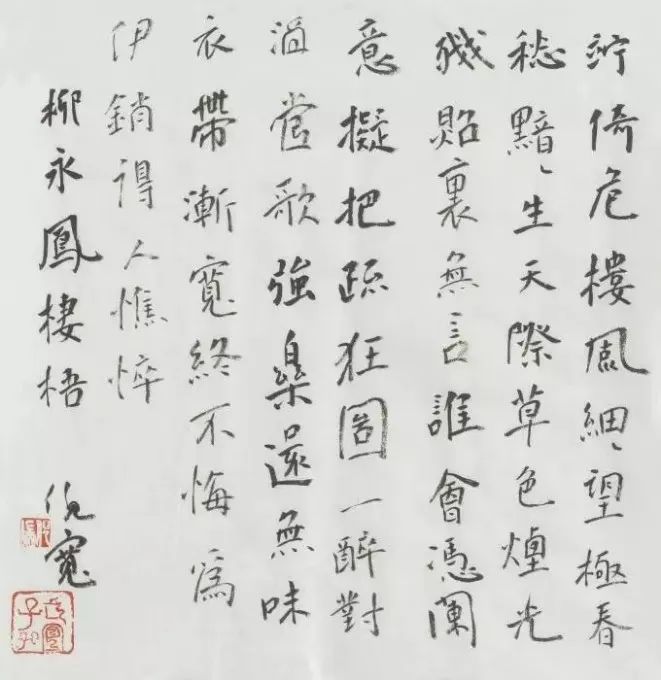 竚倚危樓風細〻望極春
愁黯〻生天際草色煙光
殘照裏無言誰會憑闌
意擬把疏狂圖一醉對
酒當歌強樂還無味
衣帶漸寬終不悔爲
伊銷得人憔悴
柳永鳳棲梧 倪寬